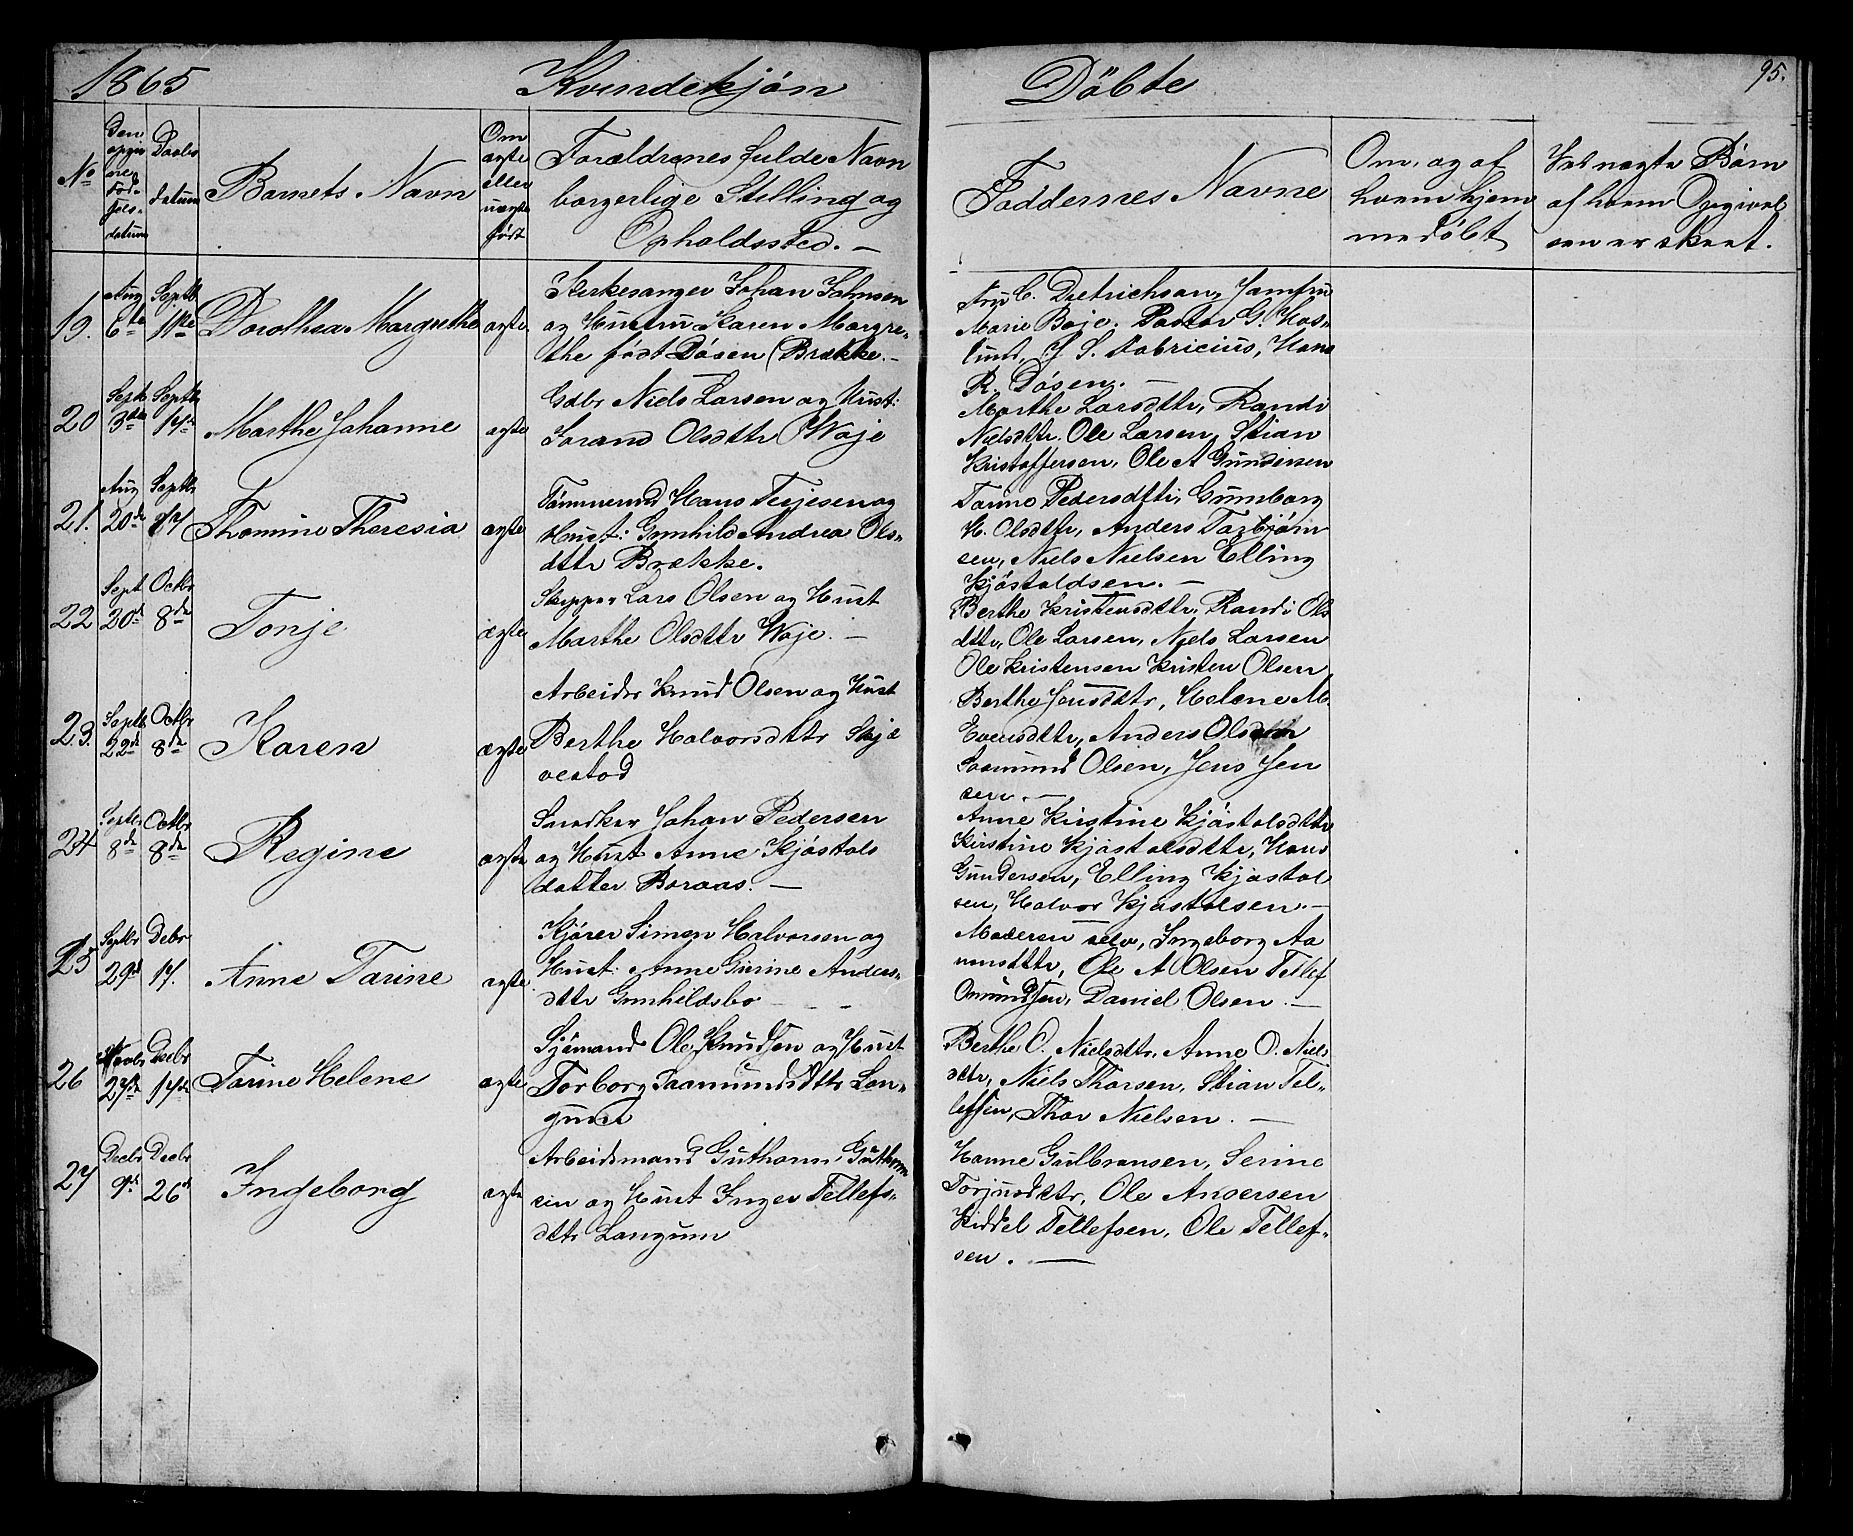 1865 Kvindekjøn Döbte 95.
No
Den opgivne Födselsdatum
Daabsdatum
Barnets Navn
Om ægte eller uægte født
Forældrenes fulde Navn
borgerlige Stilling og
Opholdssted. —
Faddernes Navne
Om, og af
hvem hjem
medöbt
Ved uægte Børn
af hvem Opgivel
sen er skeet.
19. Aug 6te Septb 1ste Dorothea Margrethe ægte
Kirkesanger Johan Johnsen
og Hustru Karen Margre-
the født Dösen (Brække. —
Fru C. Dietrichsen, Jomfru
Marie Boje. Pastor G. Has-
lund, J S. Fabricius, Hans
R. Dösen. —
20 Septb 3die Septb 17de Marthe Johanne ægte
Gdbr Niels Larsen og Hust:
Sorand Olsdttr (Woje
Marthe Larsdttr, Randi
Nielsdttr. Ole Larsen, Stian
Kristoffersen, Ole A Gundersen
21. Aug 20de Septb 17 Thomine Theresia ægte
Tömmermd Hans Terjesen og
Hust: Gunhild Andrea Ols-
dttr Brække.
Tarine Pedersdttr, Gunborg
H. Olsdttr, Anders Torbjörn
sen, Niels Nielsen Elling
Kjöstoldsen. —
22 Sept 20de Octbr 8de Tonje ægte
Skipper Lars Olsen og Hust
Marthe Olsdttr Woje. —
Berthe Kristensdttr, Randi Ols
dttr, Ole Larsen, Niels Larsen
Ole Kristensen Kristen Olsen
23. Septb 22de Octbr 8de Karen ægte
Arbeider Knud Olsen og Hust
Berthe Halvorsdttr Skjæ
vestad
Berthe Jensdttr, Helene M.
Evensdttr, Anders
Saamund Olsen, Jens Jen
sen. —
24 Septbr 8de Octbr 8de Regine ægte
Snedker Johan Pedersen
og Hust Anne Kjöstols
datter Boraas. —
Anne Kirstine Kjöstolsdttr
Kirstine Kjöstolsdttr, Hans
Gundersen, Elling Kjöstol
sen, Halvor Kjöstolsen. —
25 Septbr 29de Debr 17. Anne Tarine ægte
Kjörer Simen Halvorsen og
Hust: Anne Gurine Anders-
dttr Gunhildsbo — —
Moderen selv, Ingeborg Aa
nonsdttr, Ole A Olsen Tellef
Omundsen, Daniel Olsen. —
26 Novbr 27de Decbr 17de Tarine Helene ægte
Sjömand Ole Knudsen og Hust
Torborg Saamundsdttr Lan-
gum
Berthe O. Nielsdttr, Anne O. Niels
dttr, Niels Thorsen, Stian Tel-
lefsen, Thor Nielsen. —
27 Decbr 9de Decbr 26de Ingeborg ægte
Arbeidsmand Guthorm Guthorm
sen og Hust Inger Tellefs-
dttr Langum
Hanne Gulbransen, Serine
Torjusdttr, Ole Andersen
Kiddel Tellefsen, Ole Tellef-
sen. —